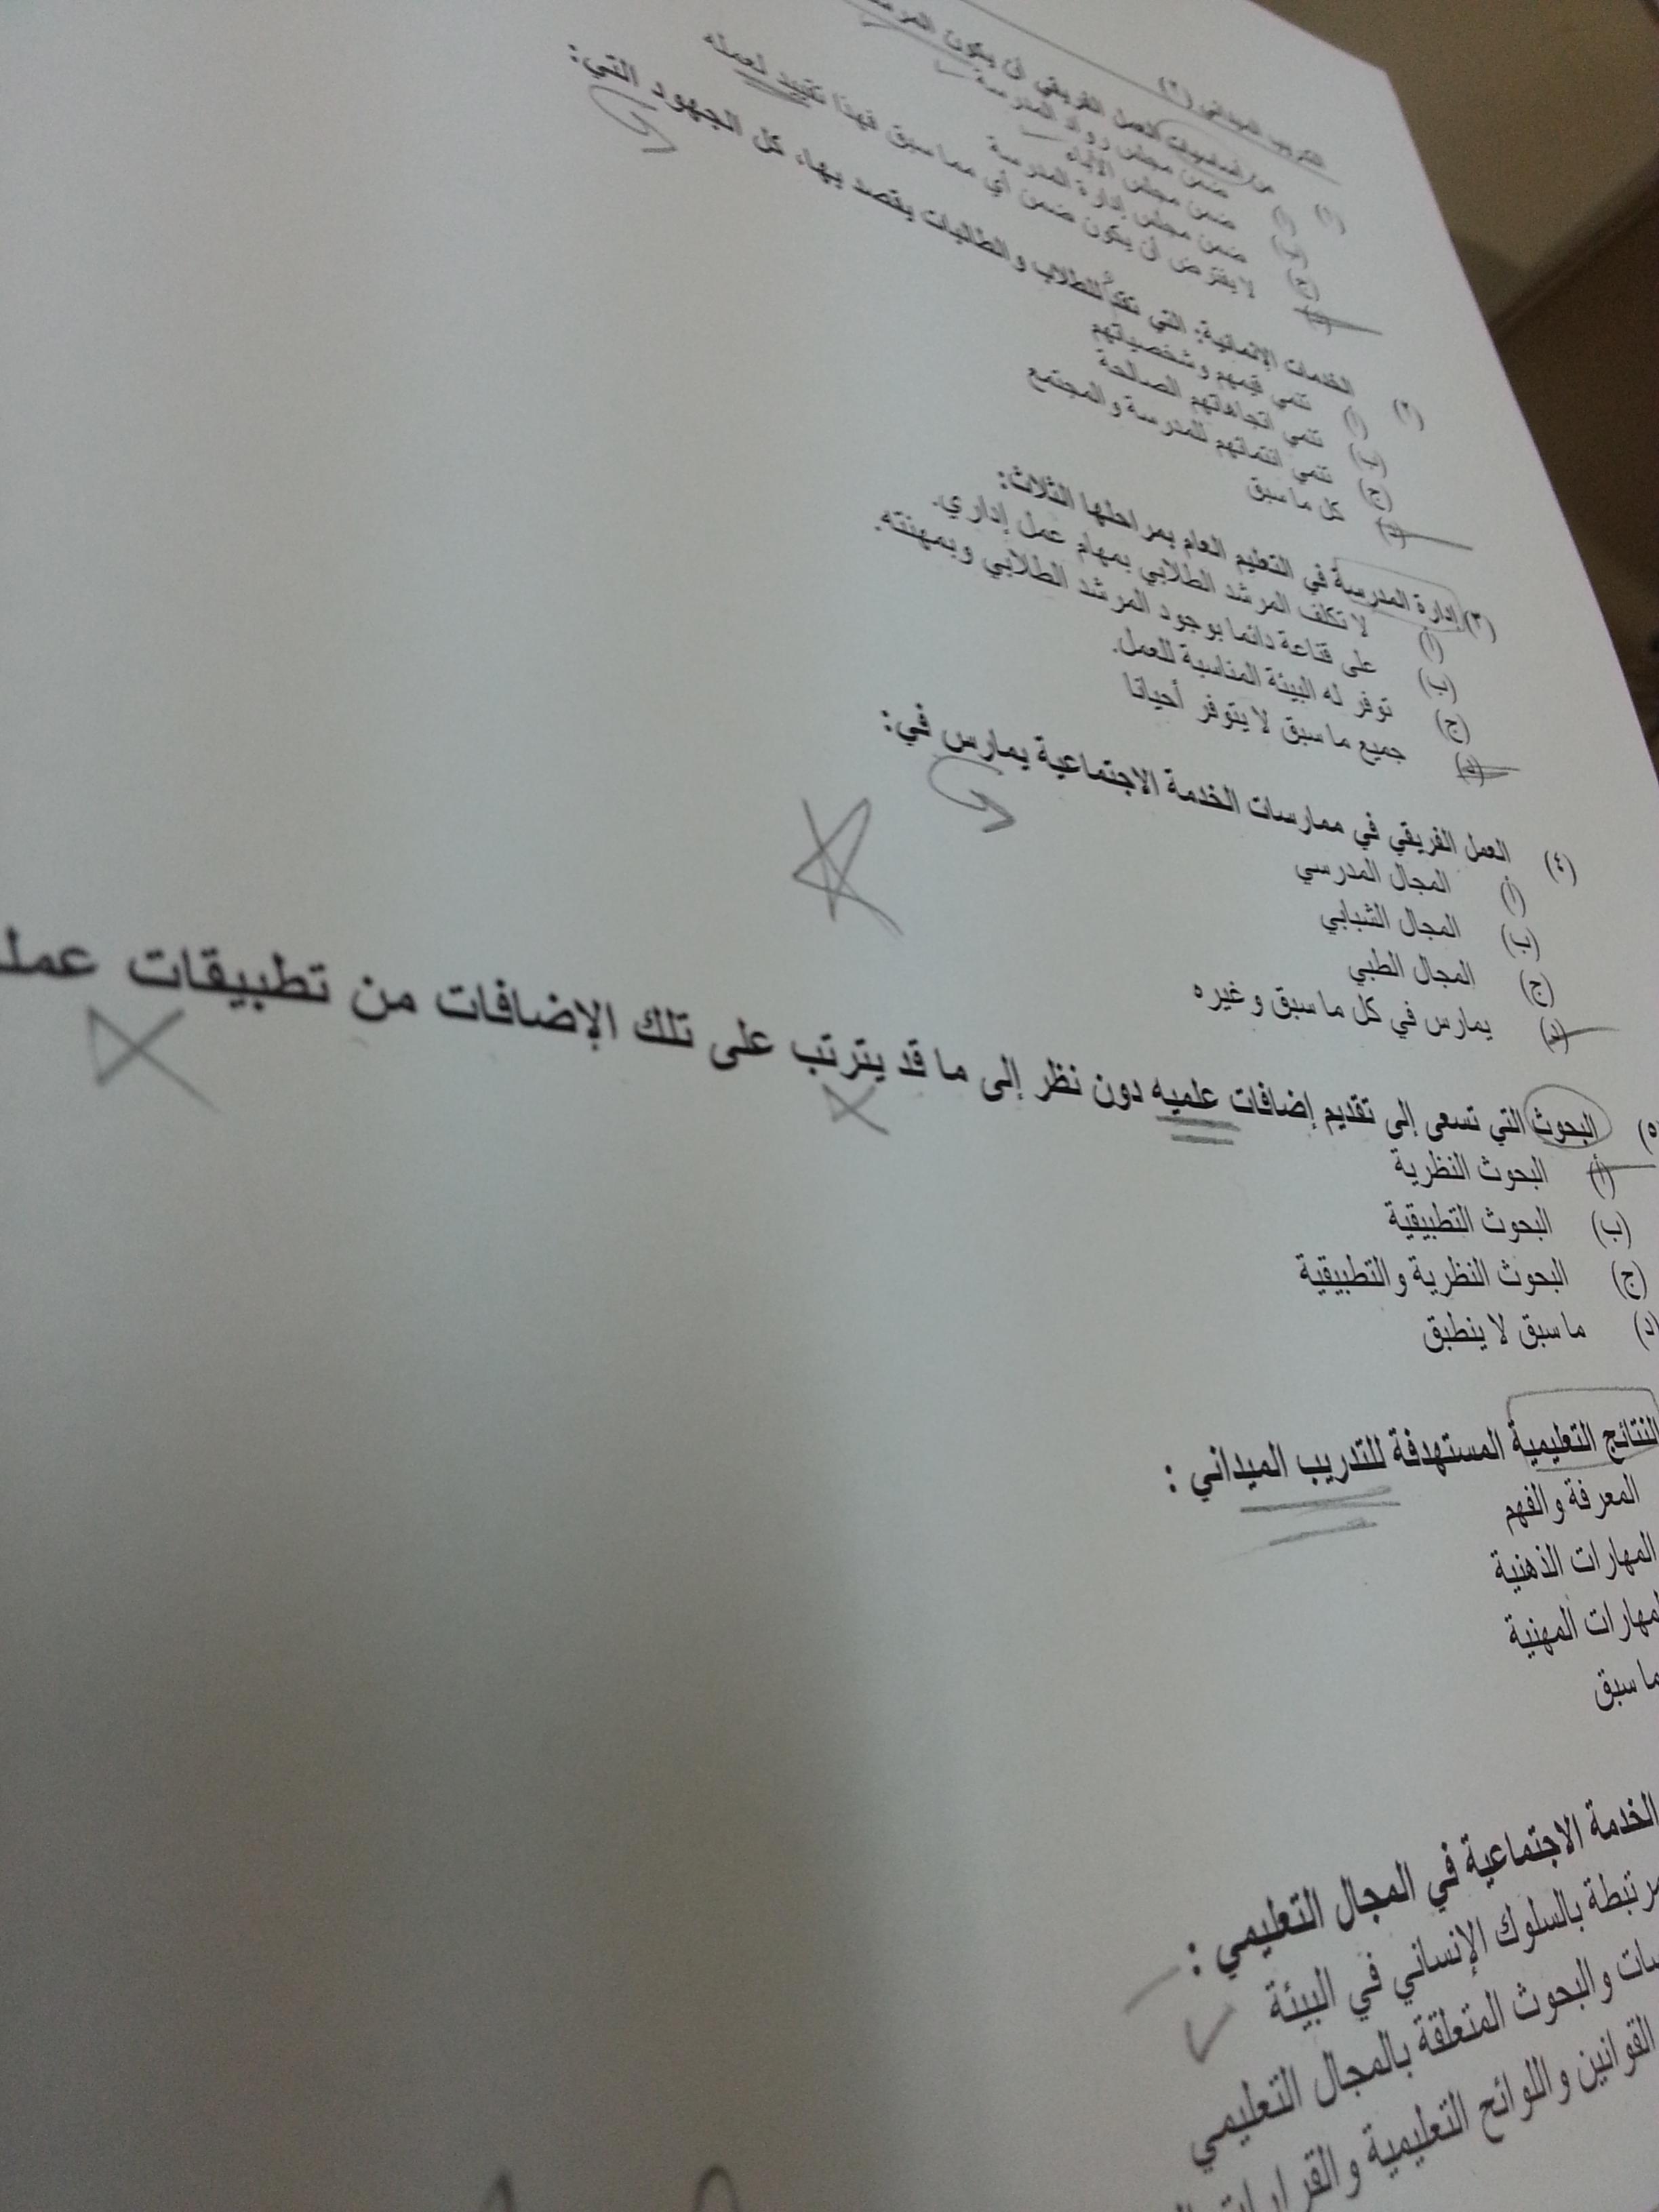 التدريب الميداني (٢)
١) من أساسيات العمل الفريقي أن يكون
أ) ضمن مجلس رواد المدرسة
ب) ضمن مجلس الآباء
ج) ضمن مجلس إدارة المدرسة
د) لا يفترض أن يكون ضمن أي مما سبق فهذا تقييد لعمله
٢) الخدمات الإنمائية: التي تقدم للطلاب والطالبات يقصد بها، كل الجهود التي:
أ) تنمي قيمهم وشخصياتهم
ب) تنمي اتجاهاتهم الصالحة
ج) تنمي انتمائهم للمدرسة والمجتمع
د) كل ما سبق
٣) إدارة المدرسة في التعليم العام بمراحلها الثلاث:
أ) لا تكلف المرشد الطلابي بمهام عمل إداري.
ب) على قناعة دائما بوجود المرشد الطلابي وبمهنته.
ج) توفر له البيئة المناسبة للعمل.
د) جميع ما سبق لا يتوفر أحيانا
٤) العمل الفريقي في ممارسات الخدمة الاجتماعية يمارس في:
أ) المجال المدرسي
ب) المجال الشبابي
ج) المجال الطبي
د) يمارس في كل ما سبق وغيره
٥) البحوث التي تسعى إلى تقديم إضافات علميه دون نظر إلى ما قد يترتب على تلك الإضافات من تطبيقات
أ) البحوث النظرية
ب) البحوث التطبيقية
ج) البحوث النظرية والتطبيقية
د) ما سبق لا ينطبق
النتائج التعليمية المستهدفة للتدريب الميداني :
المعرفة والفهم
المهارات الذهنية
المهارات المهنية
ما سبق
الخدمة الاجتماعية في المجال التعليمي :
بالسلوك الإنساني في البيئة
والبحوث المتعلقة بالمجال التعليمي
القوانين واللوائح التعليمية